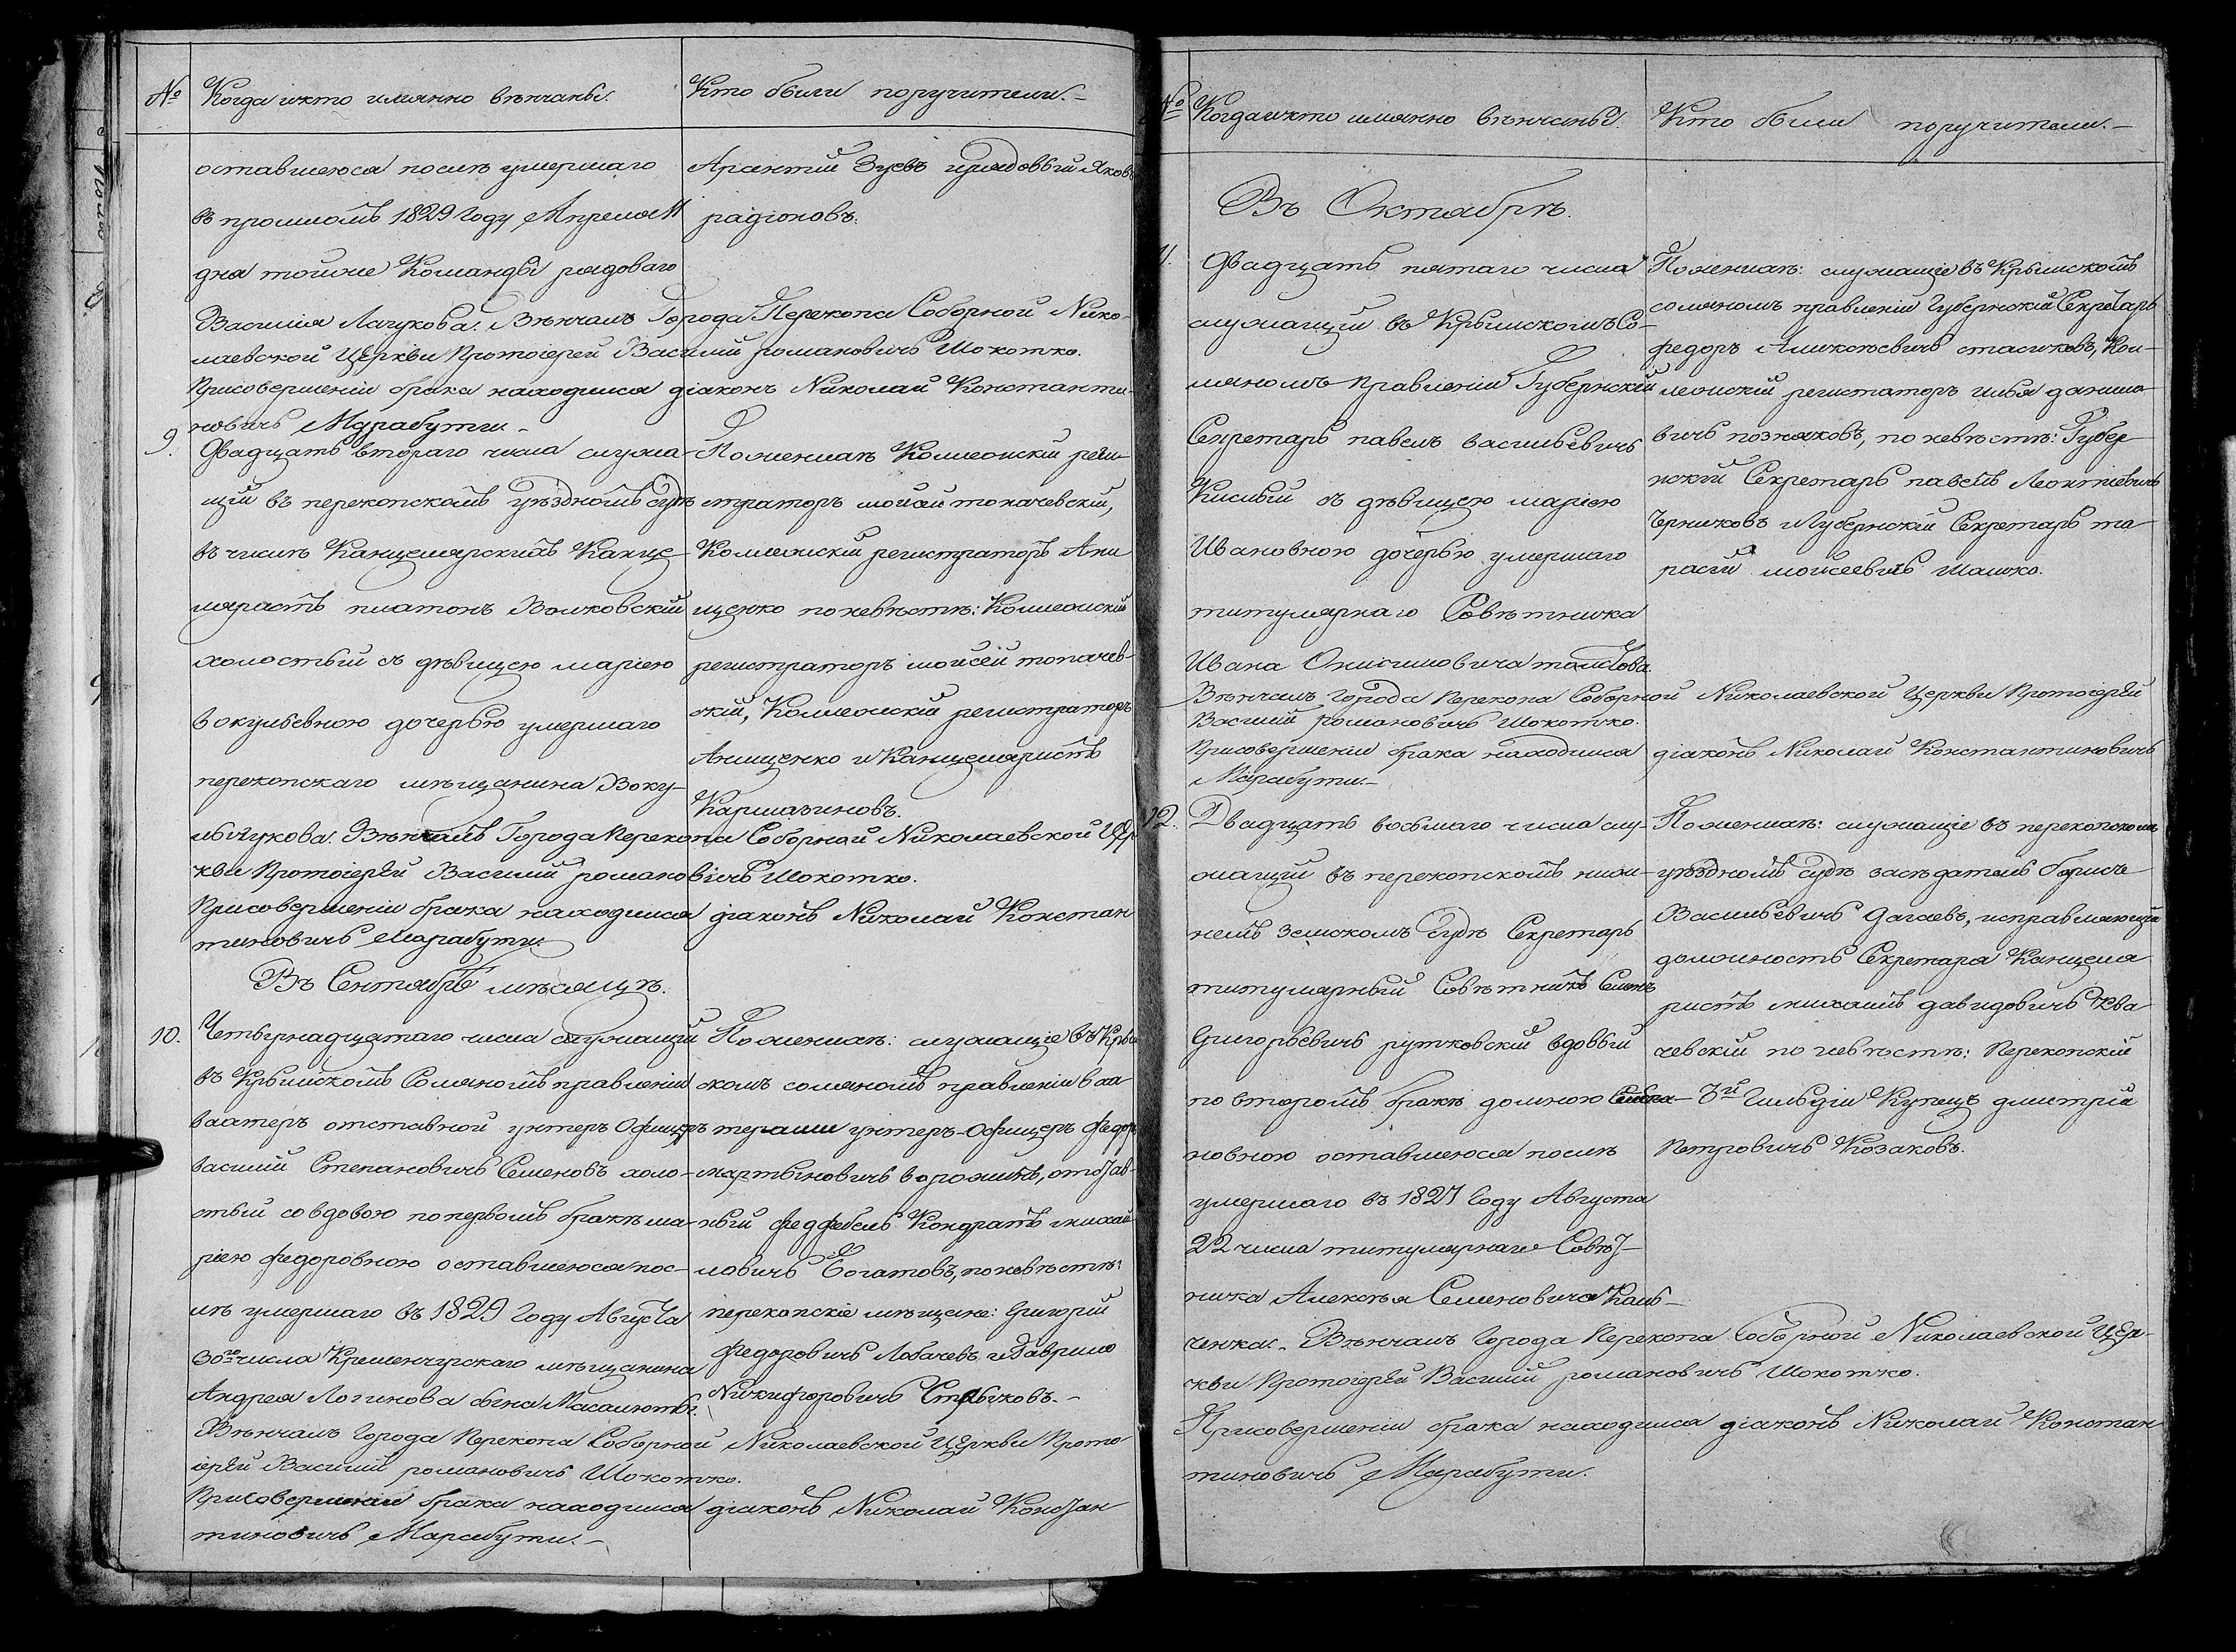 № Когда икто имянно вѣнчаны.
Кто были поручители.–
оставшеюся послѣ умершаго
въ прошломъ 1829 Году Апреля 11
дня тойже Команды рядоваго
Василія Лачукова. Вѣнчалъ Города Перекопа Соборной Нико-
лаевской Церкви Протоіерей Василій романовичъ Шокотко.
Присовершеніи брака находился діаконъ Николай Константи-
новичъ Марабутин.–
Арсентій Зуевъ ирядовый Яковъ
радіоновъ.
9. Двадцать втораго числа служа-
щій въ перекопскомъ уѣздномъ судѣ
въ числѣ Канцелярскихъ Канце-
ляристъ платонъ Волковскій
холостый съ дѣвицею маріею
вокульевною дочерью умершаго
перекопскаго мѣщанина Воку-
лы Чукова. Вѣнчалъ Города Перекопа Соборной Николаевской Цер
кви Протоіерей Василій романовичъ Шокотко.
Присовершеніи брака находился діаконъ Николай Констан
тиновичъ Марабути.
Поженихѣ Коллежскій реги-
страторъ мойсей топачевскій,
Коллежскій регистраторъ Ани
щенко поневѣстѣ: Коллежскій
регистраторъ мойсей топачев-
скій, Коллежскій регистраторъ
Анищенко и Канцеляристъ
Кармазиновъ.
Въ Сентябрѣ мѣсяцѣ.
10. Четырнадцатаго числа служащій
въ Крымскомъ Соляномъ правленіи
вахтеръ отставной унтеръ Офицеръ
василій Степановичъ Семеновъ холо-
стый со вдовою попервомъ бракѣ ма-
ріею федоровною оставшеюся пос-
лѣ умершаго въ 1829 Году Августа
30го числа Кременчугскаго мѣщанина
Андрея Логинова сына Масалюты.
Вѣнчалъ Города Перекопа Соборной Николаевской Церкви Прото
іерей Василій романовичъ Шокотко.
Присовершеніи брака находился діаконъ Николай Констан
тиновичъ Марабути.–
Поженихѣ: служащіе въ Крым
скомъ соляномъ правленіи вах
терами унтеръ-Офицеръ федоръ
мартыновичъ ворожилъ, отстав-
ный федфебель Кондратъ михай
ловичъ Богатовъ, поневѣстѣ:
перекопскіе мѣщане: Григорій
федоровичъ Лобачевъ и Гаврило
Никифоровичъ
№ Когдаикто имянно вѣнчаны.
Кто были поручители.–
Въ Октябрѣ.
11. Двадцать пятаго числа
служащій въ Крымскомъ Со-
ляномъ правленіи Губернскій
Секретарь павелъ васильевичъ
Кислый съ дѣвицею маріею
Ивановною дочерью умершаго
титулярнаго Совѣтника
Ивана Онисимовича
Вѣнчалъ Города Перекопа Соборной Николаевской Церкви Протоіерей
Василій романовичъ Шокотко.
Присовершеніи брака находился діаконъ Николай Константиновичъ
Марабути.–
Поженихѣ: служащіе въ Крымскомъ
соляномъ правленіи Губернскій Секретарь
федоръ Алексѣевичъ стасиковъ, Кол-
лежскій регистаторъ илья данило
вичъ позняковъ, по невѣстѣ: Губер
нскій Секретарь павелъ Леонтіевичъ
и Губернскій Секретарь та
расій мойсеевичъ Шашко.
12. Двадцать восьмаго числа слу-
жащій въ перекопскомъ ниж-
немъ земскомъ Судѣ Секретарь
титулярный Совѣтникъ Семенъ
Григорьевичъ рутковскій вдовый
повторомъ бракѣ домною
новною оставшеюся послѣ
умершаго въ 1827 Году Августа
22 числа титулярнаго Совѣт-
ника Алексѣя Семеновича Каль-
ченка.– Вѣнчалъ Города Перекопа Соборной Николаевской Цер-
кви Протоіерей Василій романовичъ Шокотко.
Присовершеніи брака находился діаконъ Николай Констан
тиновичъ Марабути.
Поженихѣ: служащіе въ перекопскомъ
уѣздномъ судѣ засѣдатель борисъ
Васильевичъ Дагаевъ, исправляющій
должность Секретаря Канцеля
ристъ михаилъ давидовичъ Ква
чевскій по невѣстѣ: Перекопскій
3й Гильдіи Купецъ дмитрій
Петровичъ Козаковъ.